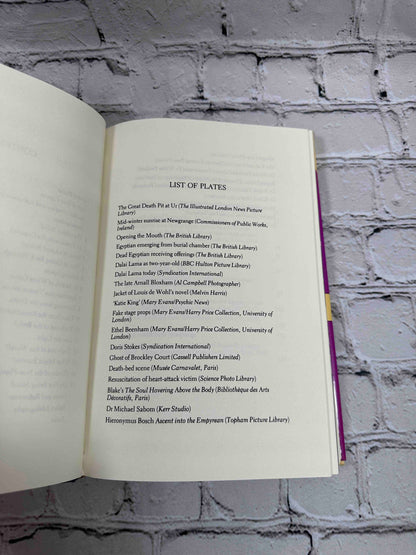 LIST OF PLATES
The Great Death Pit at Ur (The Illustrated London News Picture
Library)
Mid-winter sunrise at Newgrange (Commissioners of Public Works,
Ireland)
Opening the Mouth (The British Library)
Egyptian emerging from burial chamber (The British Library)
Dead Egyptian receiving offerings (The British Library)
Dalai Lama as two-year-old (BBC Hulton Picture Library)
Dalai Lama today (Syndication International)
The late Arnall Bloxham (Al Campbell Photographer)
Jacket of Louis de Wohl's novel (Melvin Harris)
'Katie King' (Mary Evans/Psychic News)
Fake stage props (Mary Evans/Harry Price Collection, University of
London)
Ethel Beenham (Mary Evans/Harry Price Collection, University of
London)
Doris Stokes (Syndication International)
Ghost of Brockley Court (Cassell Publishers Limited)
Death-bed scene (Musée Carnavalet, Paris)
Resuscitation of heart-attack victim (Science Photo Library)
Blake's The Soul Hovering Above the Body (Bibliothèque des Arts
Décoratifs, Paris)
Dr Michael Sabom (Kerr Studio)
Hieronymus Bosch Ascent into the Empyrean (Topham Picture Library)